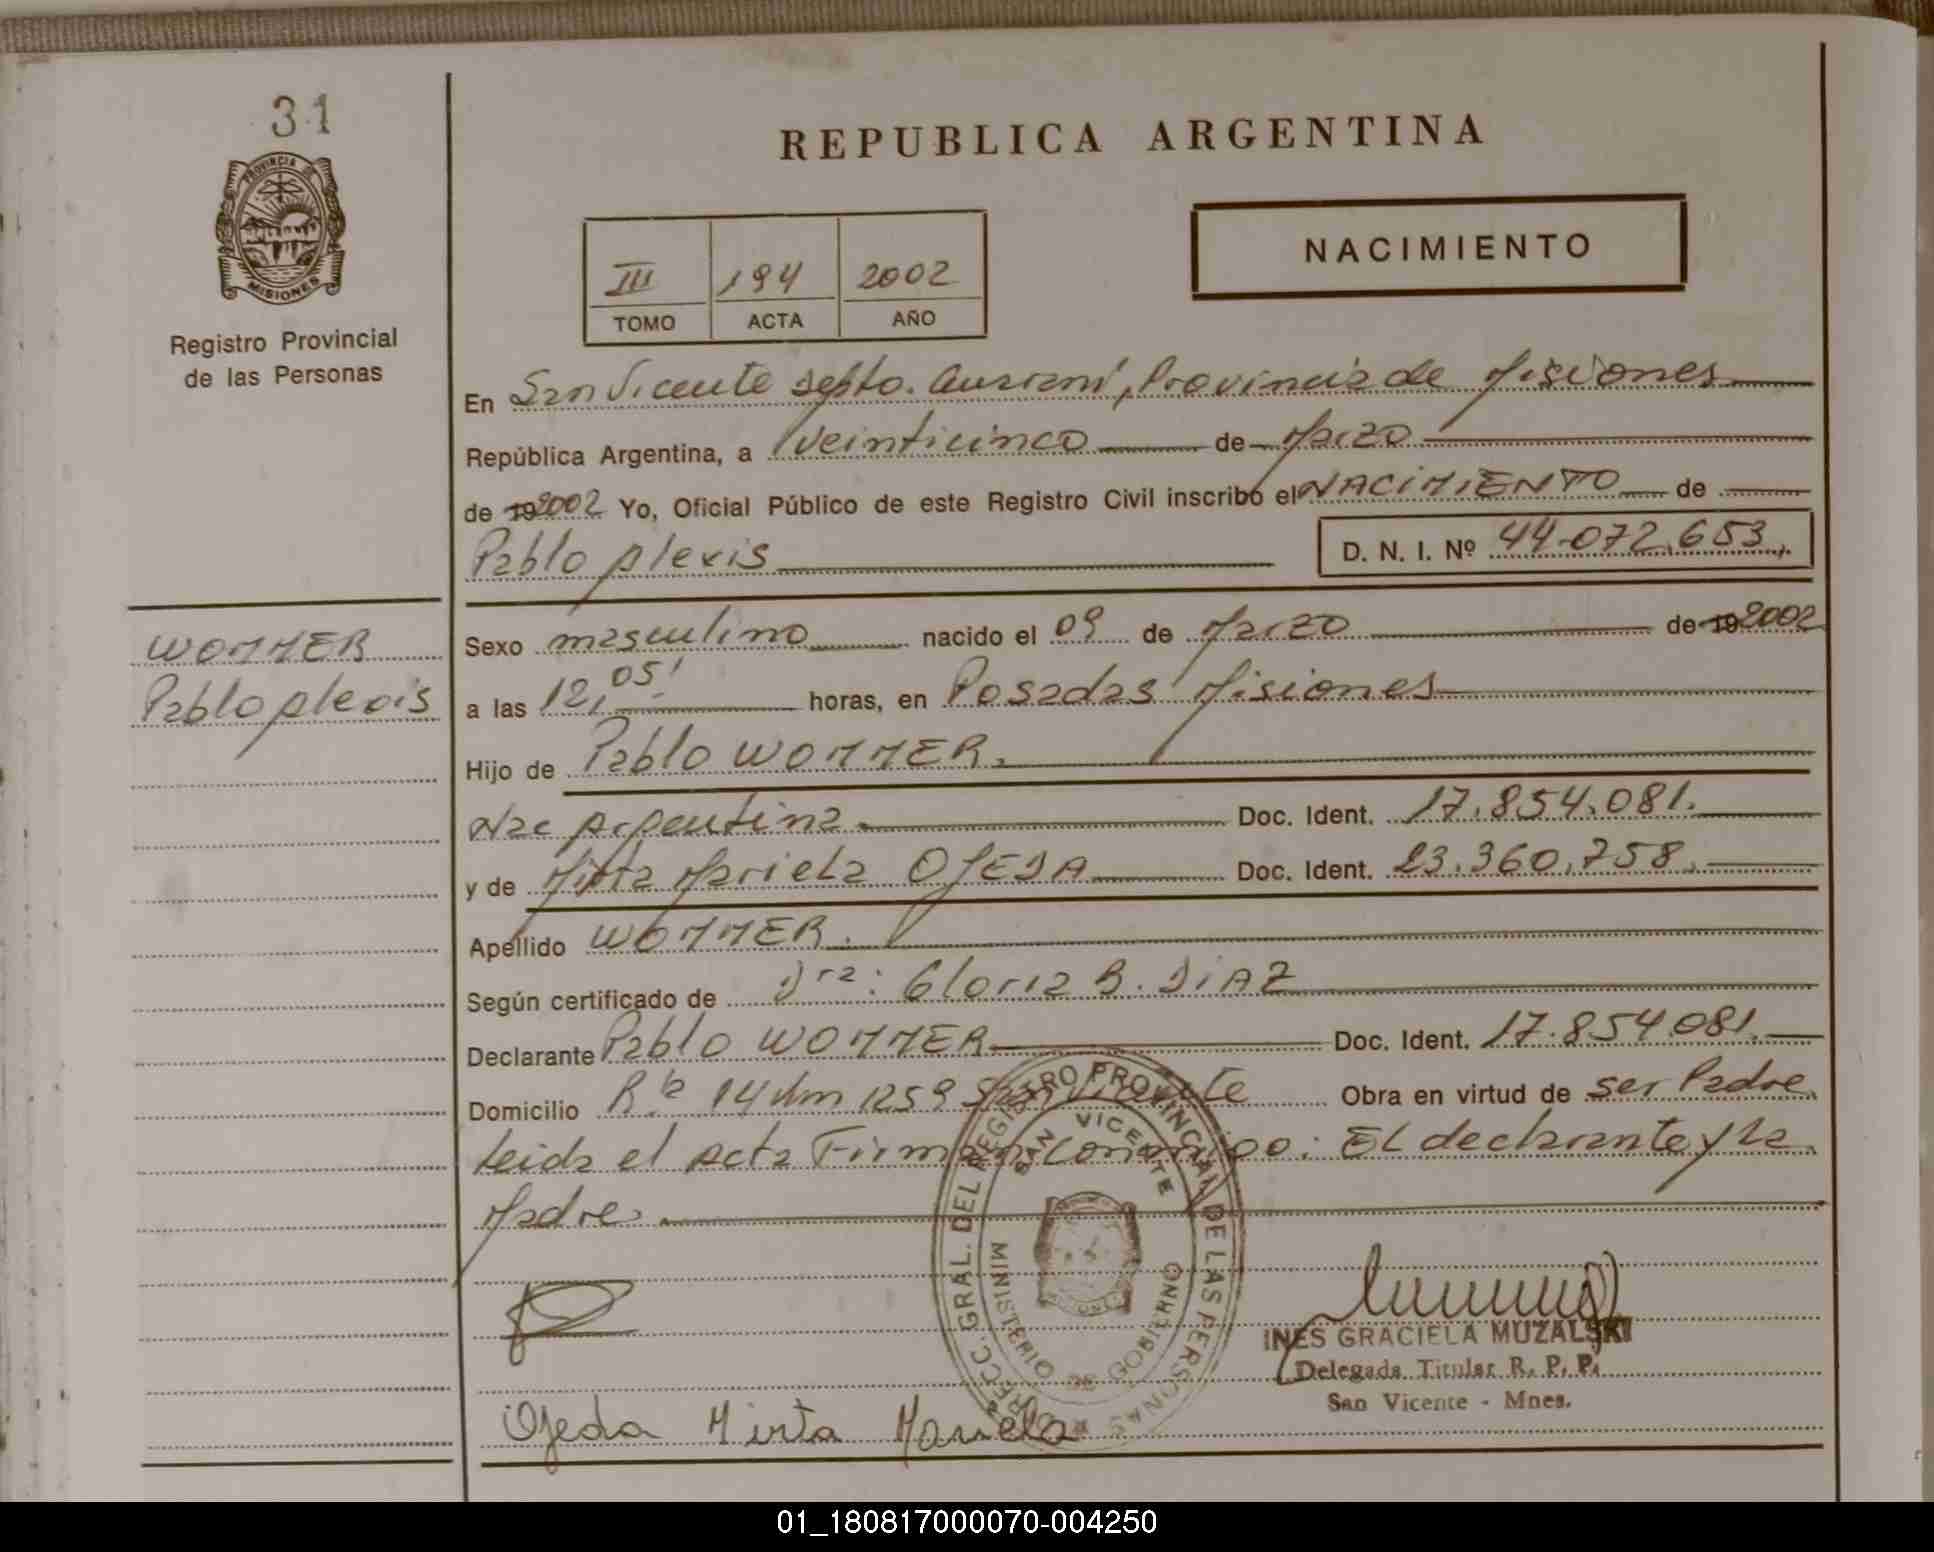 31
PROVINCIA DE
MISIONES
Registro Provincial
de las Personas
REPUBLICA ARGENTINA
NACIMIENTO
III 194 2002
TOMO ACTA AÑO
En San Vicente Depto. Guaraní, Provincia de Misiones
República Argentina, a veinticinco de Marzo
de 192002 Yo, Oficial Público de este Registro Civil inscribo el NACIMIENTO de
Pablo Alexis D. N. I. Nº 44.072.653
WOMMER
Pablo Alexis
Sexo masculino nacido el 09 de Marzo de 192002
a las 12,05' horas, en Posadas Misiones
Hijo de Pablo WOMMER.
Nac Argentina Doc. Ident. 17.854.081.
y de Mirta Mariela OJEDA Doc. Ident. 23.360.758.
Apellido WOMMER.
Según certificado de Dra: Gloria B. DIAZ
Declarante Pablo WOMMER Doc. Ident. 17.854.081.
Domicilio Rta 14 Km 1259 San Vicente Obra en virtud de ser Padre
Leida el Acta Firman conmigo: El declarante y la
Madre.
DIRECC. GRAL. DEL REGISTRO PROVINCIAL DE LAS PERSONAS
SAN VICENTE
MINISTERIO DE GOBIERNO
MISIONES
INES GRACIELA MUZALSKI
Delegada Titular R. P. P.
San Vicente - Mnes.
Ojeda Mirta Mariela
01_180817000070-004250